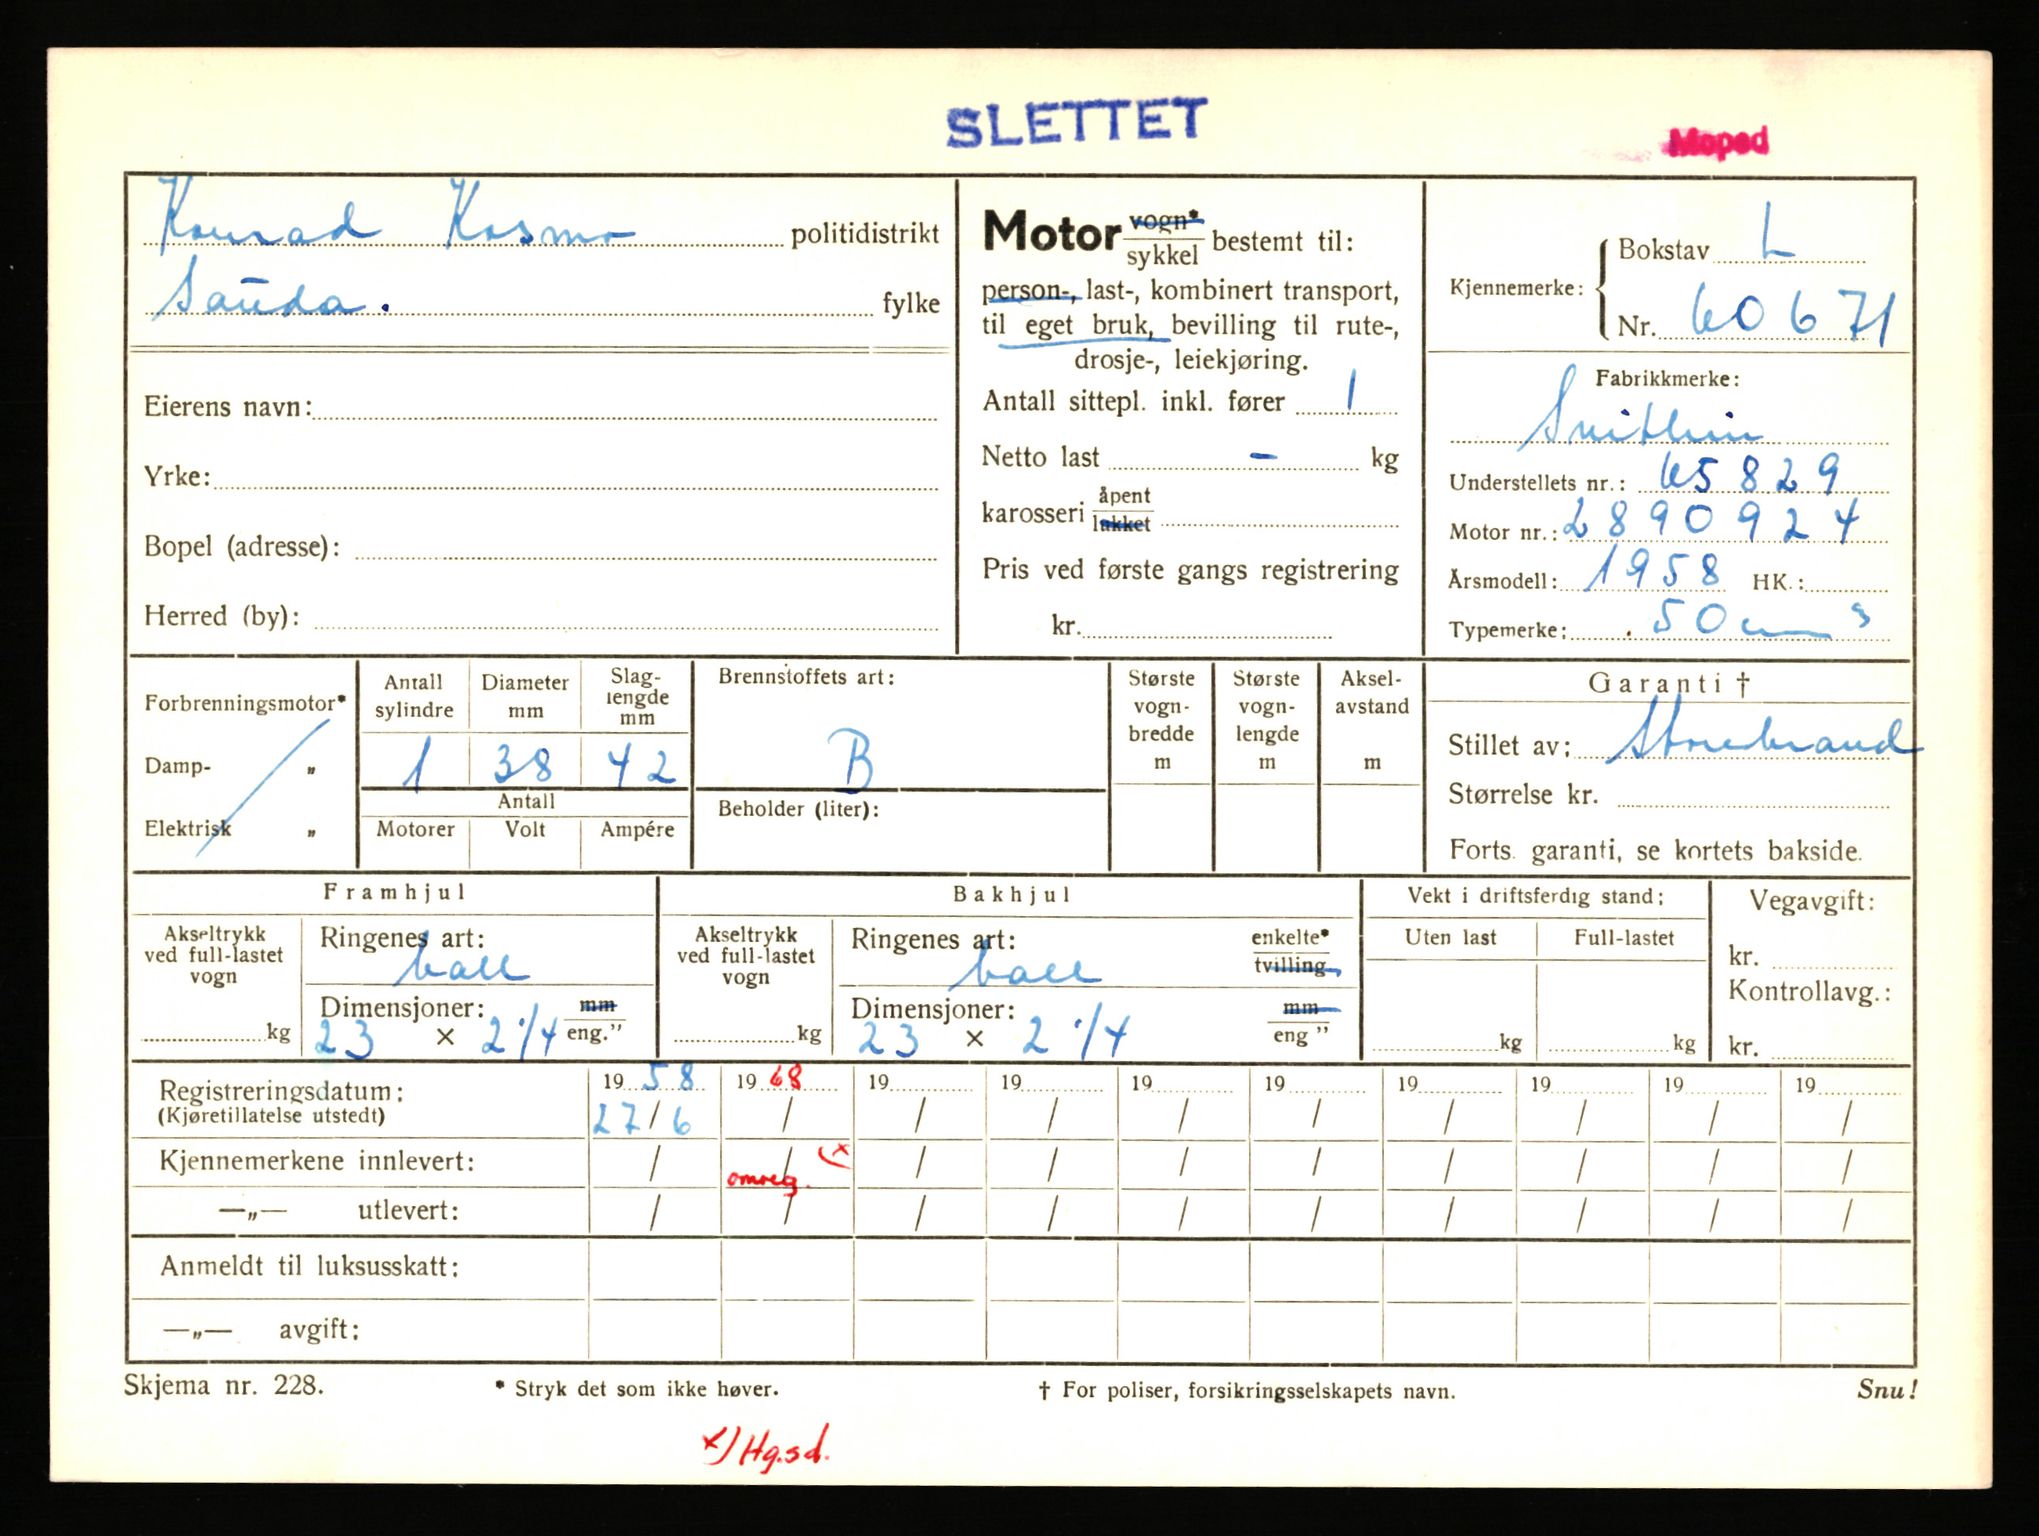 SLETTET
Moped
Konrad Kosmo politidistrikt
Sauda. fylke
Eierens navn:
Yrke:
Bopel (adresse):
Herred (by):
Motor vogn* / sykkel bestemt til:
person-, last-, kombinert transport,
til eget bruk, bevilling til rute-,
drosje-, leiekjøring.
Antall sittepl. inkl. fører 1
Netto last - kg
karosseri åpent / lukket
Pris ved første gangs registrering
kr.
Kjennemerke: Bokstav L
Nr. 60671
Fabrikkmerke:
Understellets nr.: 65829
Motor nr.: 2890924
Årsmodell: 1958 HK.:
Typemerke: 50 cm³
Forbrenningsmotor*
Damp- „
Elektrisk „
Antall sylindre 1
Diameter mm 38
Slag-lengde mm 42
Antall
Motorer Volt Ampére
Brennstoffets art:
B
Beholder (liter):
Største vogn-bredde m
Største vogn-lengde m
Aksel-avstand m
Garanti †
Stillet av: Storebrand
Størrelse kr.
Forts. garanti, se kortets bakside.
Framhjul
Akseltrykk ved full-lastet vogn
kg
Ringenes art:
ball
Dimensjoner: mm / eng."
23 × 2 1/4
Bakhjul
Akseltrykk ved full-lastet vogn
kg
Ringenes art: enkelte* / tvilling
ball
Dimensjoner: mm / eng "
23 × 2 1/4
Vekt i driftsferdig stand:
Uten last Full-lastet
kg kg
Vegavgift:
kr.
Kontrollavg.:
kr.
Registreringsdatum: 1958 1968 19 19 19 19 19 19 19 19
(Kjøretillatelse utstedt) 27/6 / / / / / / / / /
Kjennemerkene innlevert: / / x) / / / / / / / /
omreg.
—„— utlevert: / / / / / / / / / /
Anmeldt til luksusskatt:
—„— avgift:
Skjema nr. 228. * Stryk det som ikke høver. † For poliser, forsikringsselskapets navn. Snu!
x) Hg.sd.